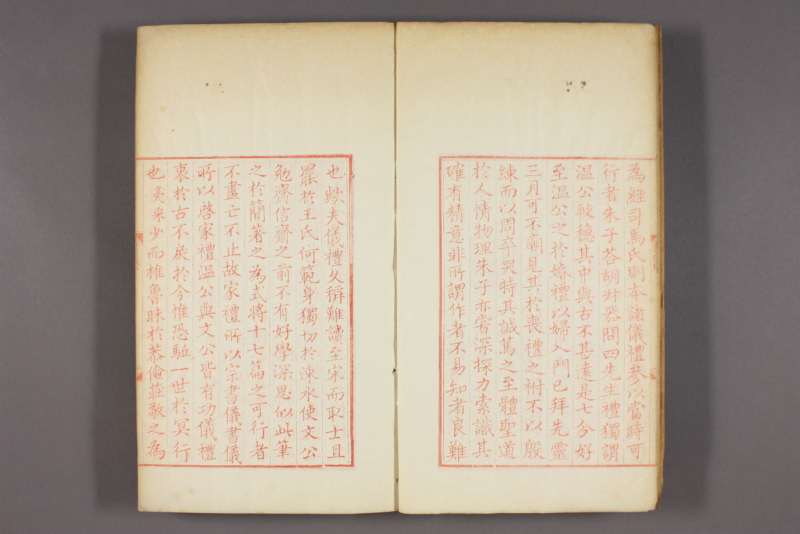 為經司馬氏則本諸儀禮參以當時可
行者朱子答胡叔器問四先生禮獨謂
溫公較穩其中與古不甚遠是七分好
至溫公之於婚禮以婦入門已拜先靈
三月可不廟見其於喪禮之祔不以殷
練而以周卒哭時其誠篤之至體聖道
於人情物理朱子亦嘗深探力索識其
確有精意非所謂作者不易知者良難
也蛈夫儀禮久稱難讀至宋而取士且
罷於王氏何範身獨切於涑水使文公
勉齋信齋之前不有好學深思似此筆
之於簡著之為式將十七篇之可行者
不盡亡不止故家禮所以宗書儀書儀
所以啓家禮溫公與文公皆有功儀禮
衷於古不戾於今惟恐駈一世於冥行
也亮采少而椎魯昧於恭儉莊敬之為